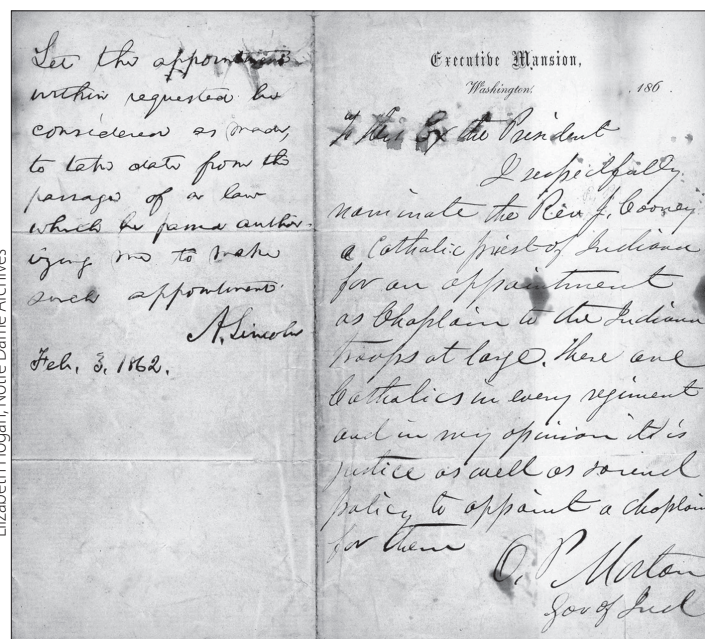 Let the appointment
within requested be
considered as made,
to take date from the
passage of a law
which be passed author-
izing me to make
such appointment.
A. Lincoln
Feb. 3, 1862.
Executive Mansion,
Washington, , 186 .
To His Ex the President
I respectfully
nominate the Rev. J. Cooney
a Catholic priest of Indiana
for an appointment
as Chaplain to the Indiana
troops at large. There are
Catholics in every regiment
and in my opinion it is
justice as well as sound
policy to appoint a chaplain
for them
O. P. Morton
Gov of Ind
Elizabeth Hogan, Notre Dame Archives